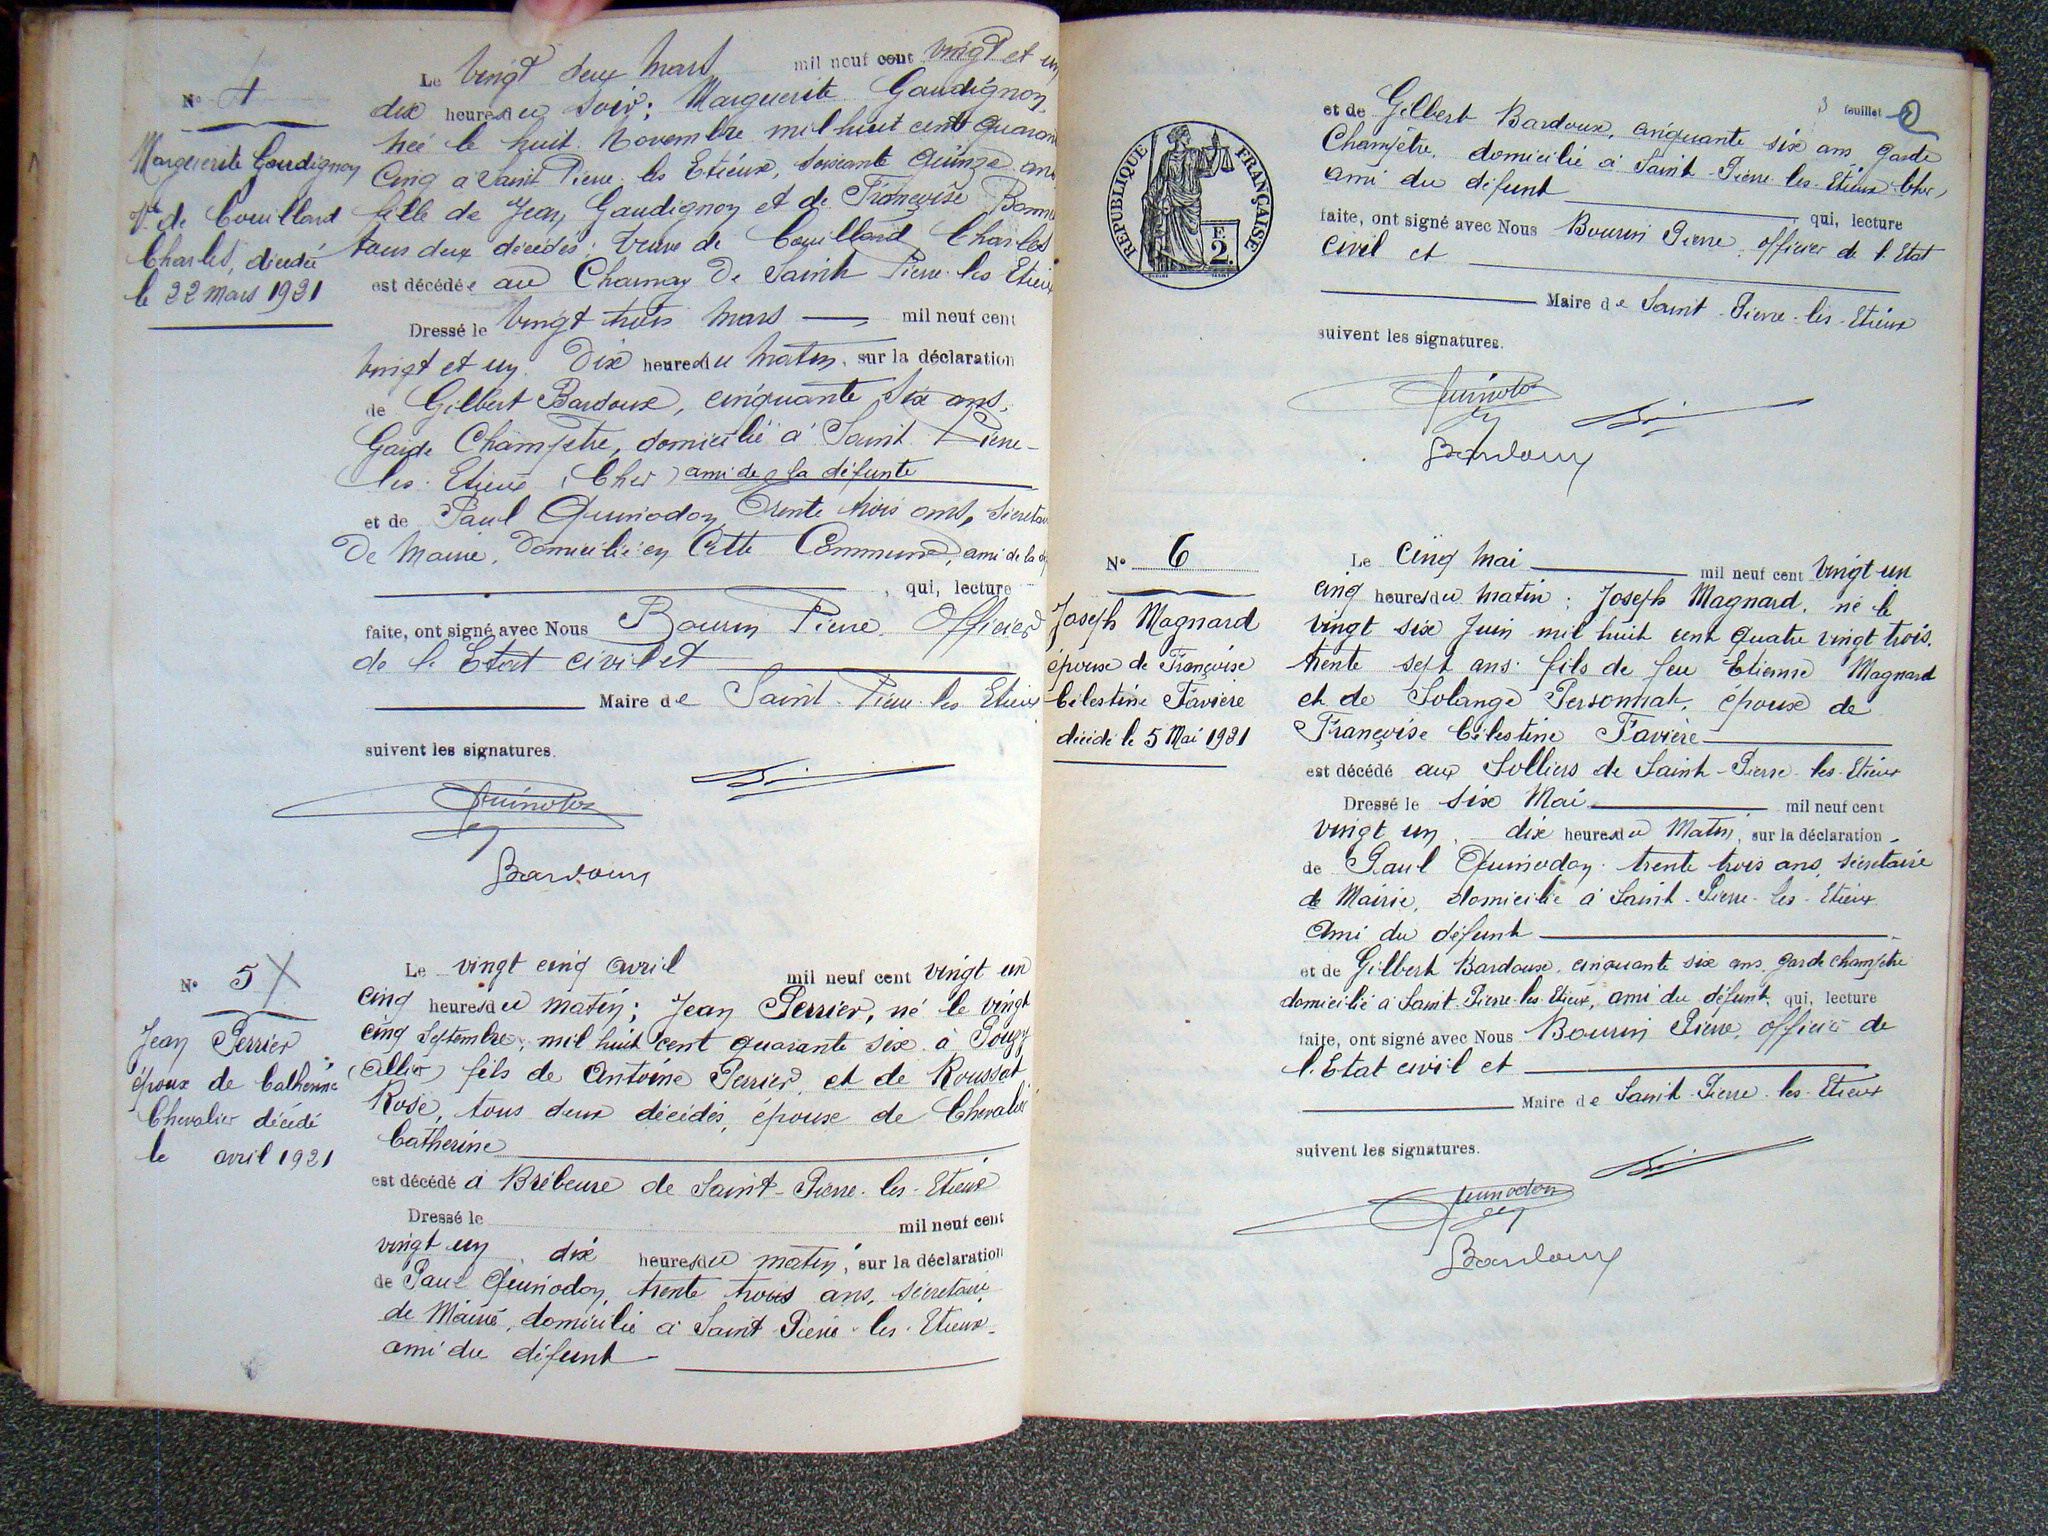 Nº 4
Marguerite Gaudignon
Vve de Couillard
Charles, décédée
le 22 mars 1921
Le vingt deux mars mil neuf cent vingt et un
dix heures du soir; Marguerite Gaudignon
née le huit Novembre mil huit cent quaran
Cinq a Saint Pierre les Etieux, soixante quinze ans
fille de Jean Gaudignon et de Françoise
tous deux décédés; veuve de Couillard Charles
est décédée au Charnay de Saint Pierre les Etieux
Dressé le vingt trois mars mil neuf cent
vingt et un Dix heures du matin, sur la déclaration
de Gilbert Bardoux, cinquante six ans,
Garde Champêtre, domicilié à Saint Pierre-
les-Etieux (Cher) ami de la défunte
et de Paul Quinodon, Trente trois ans, Sécretaire
De Mairie, Domicilié en Cette Commune, ami de la
qui, lecture
faite, ont signé avec Nous Bourin Pierre, Officier
de l'Etat civil et
Maire de Saint-Pierre les Etieux
suivent les signatures.
Quinodon
Bardoux
Nº 5 X
Jean Perrier
époux de Catherine
Chevalier décédé
le avril 1921
Le vingt cinq avril mil neuf cent vingt un
cinq heures du matin; Jean Perrier, né le vingt
cinq Septembre, mil huit cent quarante six à Pouzy
(Allier) fils de Antoine Perrier, et de Roussat
Rose, tous deux décédés, époux de Chevalier
Catherine
est décédé à Brébeure de Saint-Pierre-les-Etieux
Dressé le mil neuf cent
vingt un, dix heures du matin, sur la déclaration
de Paul Quinodon, trente trois ans, sécretaire
de Mairie, domicilié à Saint Pierre-les-Etieux
ami du défunt
3 feuillet 2
RÉPUBLIQUE FRANÇAISE
F.
2.
et de Gilbert Bardoux, cinquante six ans garde
Champêtre, domicilié à Saint-Pierre-les-Etieux Cher,
ami du défunt
qui, lecture
faite, ont signé avec Nous Bourin Pierre, officier de l'Etat
civil et
Maire de Saint-Pierre-les-Etieux
suivent les signatures.
Quinodon
Bardoux
Nº 6
Joseph Magnard
époux de Françoise
Célestine Favière
décédé le 5 Mai 1921
Le Cinq Mai mil neuf cent vingt un
cinq heures du matin; Joseph Magnard, né le
vingt six Juin mil huit cent quatre vingt trois,
trente sept ans fils de feu Etienne Magnard
et de Solange Personnat, époux de
Françoise Célestine Favière
est décédé aux Solliers de Saint-Pierre-les-Etieux
Dressé le six Mai mil neuf cent
vingt un, dix heures du Matin, sur la déclaration
de Paul Quinodon trente trois ans, sécretaire
de Mairie, domicilié à Saint-Pierre-les-Etieux
Ami du défunt
et de Gilbert Bardoux, cinquante six ans, garde champêtre
domicilié à Saint-Pierre-les-Etieux, ami du défunt, qui, lecture
faite, ont signé avec Nous Bourin Pierre, officier de
l'Etat civil et
Maire de Saint-Pierre-les-Etieux
suivent les signatures.
Quinodon
Bardoux